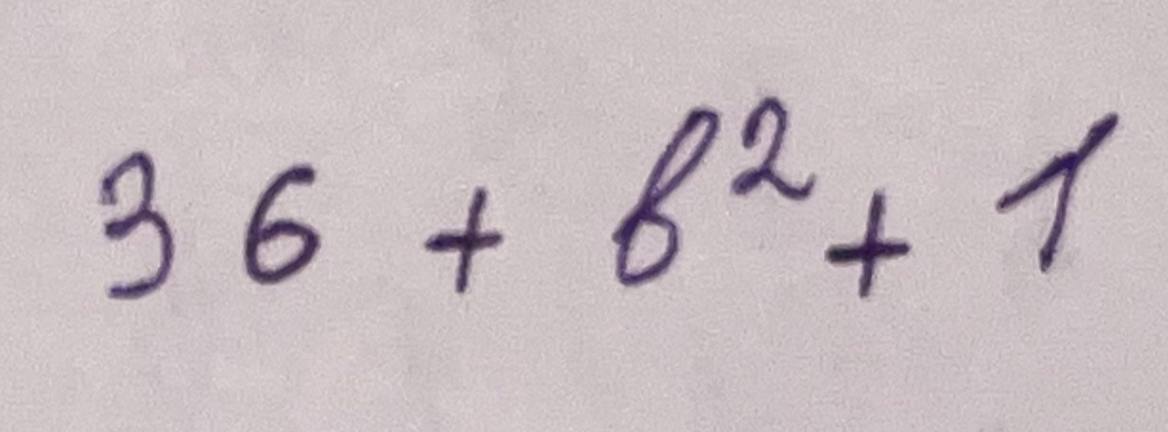 36 + b² + 1